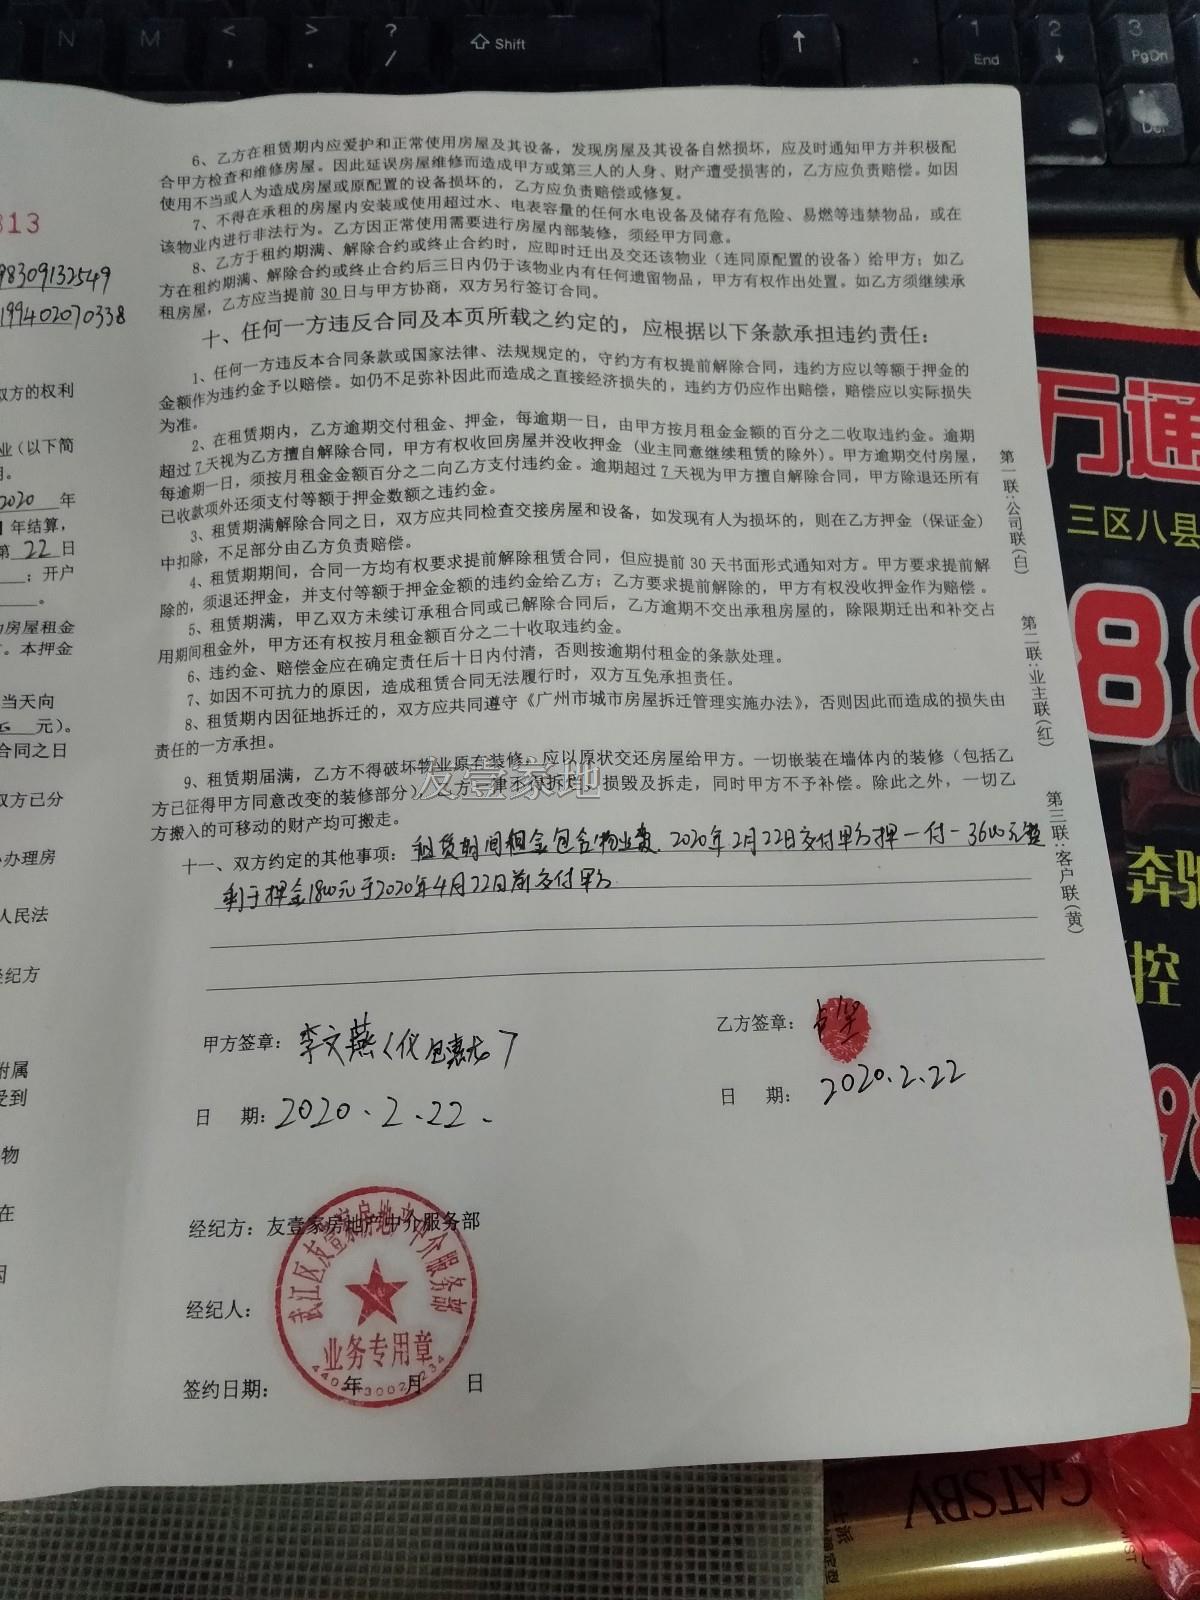 N
M
<
,
>
.
?
/
Shift
↑
1
End
2
↓
3
PgDn
Del
313
98309132549
199402070338
双方的权利
业（以下简
2020 年
年结算，
第 22 日
；开户
房屋租金
。本押金
当天向
元）。
合同之日
双方已分
办理房
人民法
经纪方
附属
受到
物
在
6、乙方在租赁期内应爱护和正常使用房屋及其设备，发现房屋及其设备自然损坏，应及时通知甲方并积极配
合甲方检查和维修房屋。因此延误房屋维修而造成甲方或第三人的人身、财产遭受损害的，乙方应负责赔偿。如因
使用不当或人为造成房屋或原配置的设备损坏的，乙方应负责赔偿或修复。
7、不得在承租的房屋内安装或使用超过水、电表容量的任何水电设备及储存有危险、易燃等违禁物品，或在
该物业内进行非法行为。乙方因正常使用需要进行房屋内部装修，须经甲方同意。
8、乙方于租约期满、解除合约或终止合约时，应即时迁出及交还该物业（连同原配置的设备）给甲方；如乙
方在租约期满、解除合约或终止合约后三日内仍于该物业内有任何遗留物品，甲方有权作出处置。如乙方须继续承
租房屋，乙方应当提前 30 日与甲方协商，双方另行签订合同。
十、任何一方违反合同及本页所载之约定的，应根据以下条款承担违约责任：
1、任何一方违反本合同条款或国家法律、法规规定的，守约方有权提前解除合同，违约方应以等额于押金的
金额作为违约金予以赔偿。如仍不足弥补因此而造成之直接经济损失的，违约方仍应作出赔偿，赔偿应以实际损失
为准。
2、在租赁期内，乙方逾期交付租金、押金，每逾期一日，由甲方按月租金金额的百分之二收取违约金。逾期
超过 7 天视为乙方擅自解除合同，甲方有权收回房屋并没收押金（业主同意继续租赁的除外）。甲方逾期交付房屋，
每逾期一日，须按月租金金额百分之二向乙方支付违约金。逾期超过 7 天视为甲方擅自解除合同，甲方除退还所有
已收款项外还须支付等额于押金数额之违约金。
3、租赁期满解除合同之日，双方应共同检查交接房屋和设备，如发现有人为损坏的，则在乙方押金（保证金）
中扣除，不足部分由乙方负责赔偿。
4、租赁期期间，合同一方均有权要求提前解除租赁合同，但应提前 30 天书面形式通知对方。甲方要求提前解
除的，须退还押金，并支付等额于押金金额的违约金给乙方；乙方要求提前解除的，甲方有权没收押金作为赔偿。
5、租赁期满，甲乙双方未续订承租合同或已解除合同后，乙方逾期不交出承租房屋的，除限期迁出和补交占
用期间租金外，甲方还有权按月租金额百分之二十收取违约金。
6、违约金、赔偿金应在确定责任后十日内付清，否则按逾期付租金的条款处理。
7、如因不可抗力的原因，造成租赁合同无法履行时，双方互免承担责任。
8、租赁期内因征地拆迁的，双方应共同遵守《广州市城市房屋拆迁管理实施办法》，否则因此而造成的损失由
责任的一方承担。
9、租赁期届满，乙方不得破坏物业原有装修，应以原状交还房屋给甲方。一切嵌装在墙体内的装修（包括乙
方已征得甲方同意改变的装修部分）乙方一律不得拆烂、损毁及拆走，同时甲方不予补偿。除此之外，一切乙
方搬入的可移动的财产均可搬走。
友壹家地
十一、双方约定的其他事项：租赁时间租金包含物业费，2020年2月22日交付甲方押一付一3600元整
剩于押金1800元于2020年4月22日前交付甲方
甲方签章：李文燕
乙方签章：
日 期：2020、2、22、
日 期：2020.2.22
经纪方：友壹家房地产中介服务部
经纪人：
签约日期： 年 月 日
武江区友壹家房地产中介服务部
业务专用章
第一联：公司联（白）
第二联：业主联（红）
第三联：客户联（黄）
万通
三区八县
88
奔驰
控
98
GATSBY
MIST